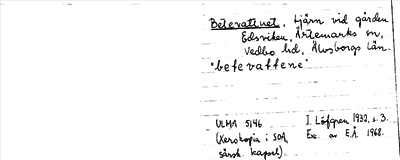 Betevattnet, tjärn vid gården
Edsviken, Ärtemarks sn,
Vedbo hd, Älvsborgs län.
"betevattene"
ULMA 5146 I. Löfgren 1932, s. 3.
(Xerokopia i SOA, Exc. av E.Å. 1968.
särsk. kapsel).